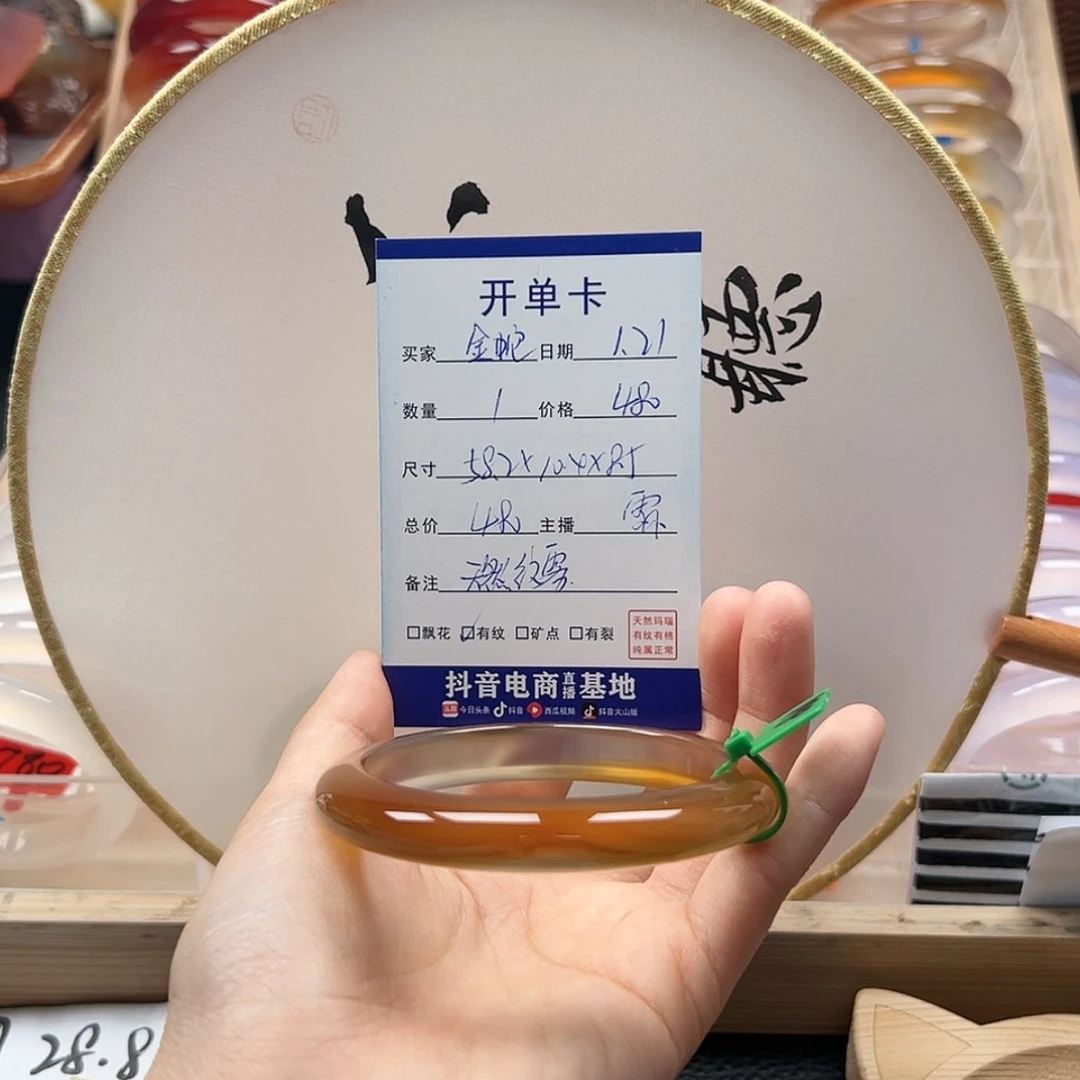 开单卡
买家 金蛇 日期 1.21
数量 1 价格 480
尺寸 58.2×10.4×8.5
总价 480 主播
备注
□飘花 ☑有纹 □矿点 □有裂
天然玛瑙
有纹有棉
纯属正常
抖音电商直播基地
头条 今日头条 抖音 西瓜视频 抖音火山版
780
28.8